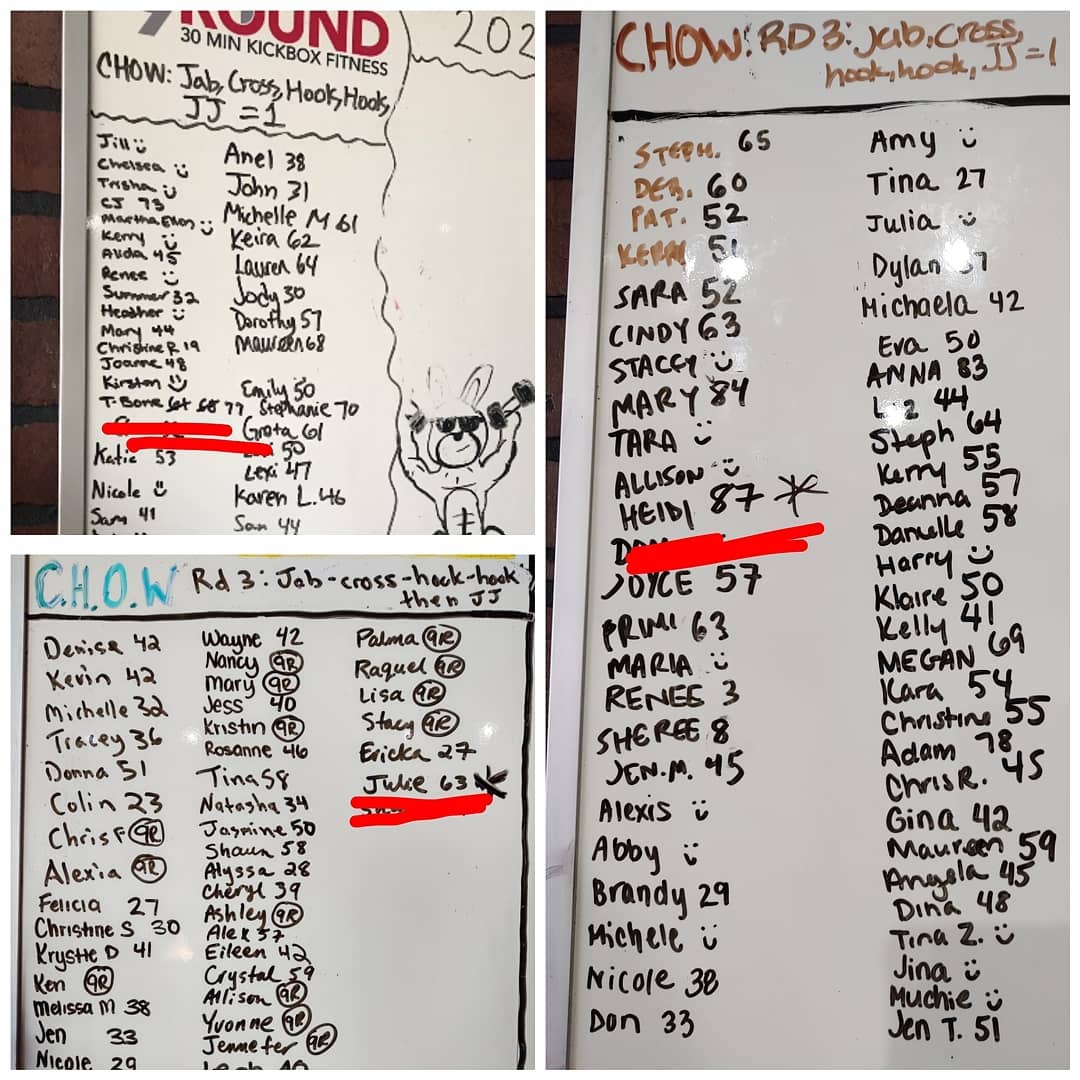 9ROUND
30 MIN KICKBOX FITNESS
202
CHOW: Jab, Cross, Hook, Hook,
JJ = 1
Jill
Chelsea
Trisha
CJ 73
Martha Ellen
Kerry
Alida 45
Renee
Summer 32
Heather
Mary 44
Christine R 19
Joanne 48
Kirsten
T-Bone 77
Katie 53
Nicole
Sam 41
Anel 38
John 31
Michelle M 61
Keira 62
Lauren 64
Jody 30
Dorothy 57
Maureen 68
Emily 50
Stephanie 70
Greta 61
50
Lexi 47
Karen L. 46
Sam 44
C.H.O.W Rd 3: Jab-cross-hook-hook
then JJ
Denise 42
Kevin 42
Michelle 32
Tracey 36
Donna 51
Colin 23
Chris F 9R
Alexia 9R
Felicia 27
Christine S 30
Krystle D 41
Ken 9R
Melissa M 38
Jen 33
Nicole 29
Wayne 42
Nancy 9R
Mary 9R
Jess 40
Kristin 9R
Rosanne 46
Tina 58
Natasha 34
Jasmine 50
Shaun 58
Alyssa 28
Cheryl 39
Ashley 9R
Alex 37
Eileen 42
Crystal 59
Allison 9R
Yvonne 9R
Jennefer 9R
Palma 9R
Raquel 9R
Lisa 9R
Stacy 9R
Ericka 27
Julie 63
CHOW: RD 3: Jab, Cross,
hook, hook, JJ = 1
STEPH. 65
DEB. 60
PAT. 52
KERRI 51
SARA 52
CINDY 63
STACEY
MARY 84
TARA
ALLISON
HEIDI 87
JOYCE 57
PRIMI 63
MARIA
RENEE 3
SHEREE 8
JEN. M. 45
Alexis
Abby
Brandy 29
Michele
Nicole 38
Don 33
Amy
Tina 27
Julia
Dylan
Michaela 42
Eva 50
ANNA 83
Liz 44
Steph 64
Kerry 55
Deanna 57
Danielle 58
Harry
Klaire 50
Kelly 41
MEGAN 69
Kara 54
Christine 55
Adam 78
Chris R. 45
Gina 42
Maureen 59
Angela 45
Dina 48
Tina Z.
Jina
Muchie
Jen T. 51